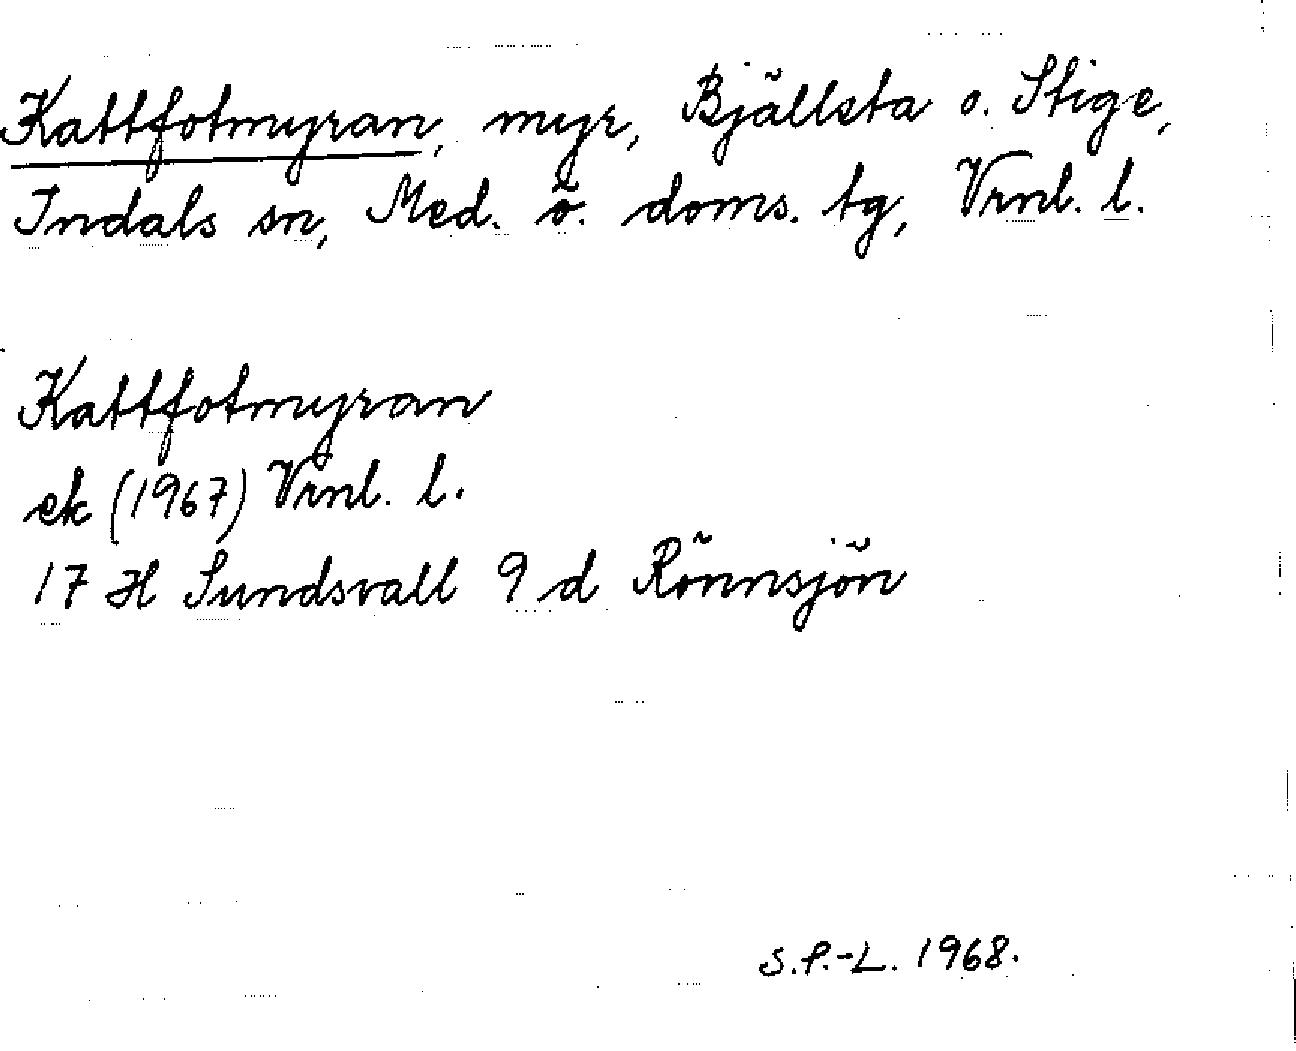 Kattfotmyran, myr, Bjällsta o. Stige,
Indals sn, Med. ö. doms. tg, Vrnl. l.
Kattfotmyran
ek (1967) Vrnl. l.
17 H Sundsvall 9 d Rönnsjön
S.P.-L. 1968.